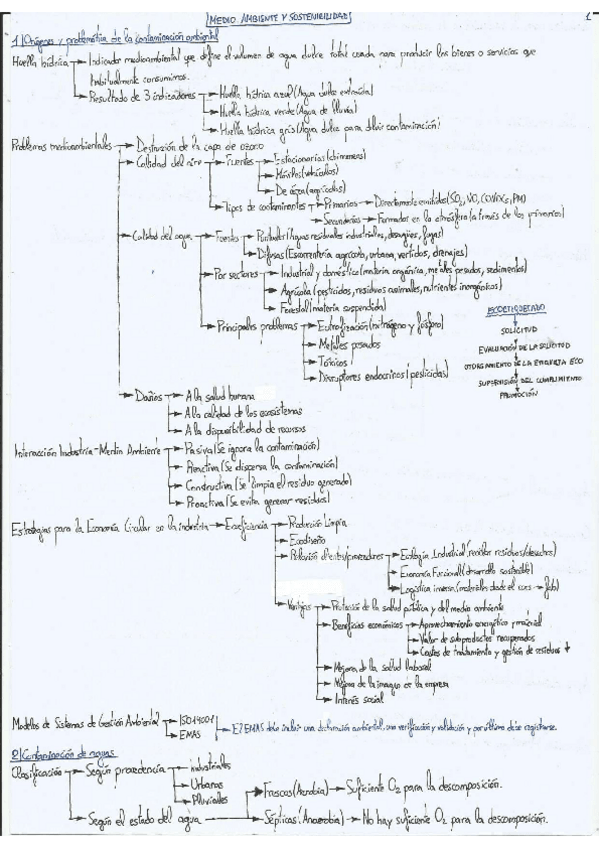 MEDIO AMBIENTE Y SOSTENIBILIDAD
1
1) Orígenes y problemática de la contaminación ambiental
Huella hídrica → Indicador medioambiental que define el volumen de agua dulce total usada para producir los bienes o servicios que
habitualmente consumimos.
→ Resultado de 3 indicadores → Huella hídrica azul (Agua dulce extraída)
→ Huella hídrica verde (Agua de lluvia)
→ Huella hídrica gris (Agua dulce para diluir contaminación)
Problemas medioambientales → Destrucción de la capa de ozono
→ Calidad del aire → Fuentes → Estacionarias (chimeneas)
→ Móviles (vehículos)
→ De área (agrícolas)
→ Tipos de contaminantes → Primarios → Directamente emitidos (SO₂, NO, COVs, PM)
→ Secundarios → Formados en la atmósfera (a través de los primarios)
→ Calidad del agua → Fuentes → Puntuales (Aguas residuales industriales, desagües, fugas)
→ Difusas (Escorrentería agrícola, urbana, vertidos, drenajes)
→ Por sectores → Industrial y doméstica (materia orgánica, metales pesados, sedimentos)
→ Agrícola (pesticidas, residuos animales, nutrientes inorgánicos)
→ Forestal (materia suspendida)
→ Principales problemas → Eutrofización (nitrógeno y fósforo)
→ Metales pesados
→ Tóxicos
→ Disruptores endocrinos (pesticidas)
ECOETIQUETADO
SOLICITUD
EVALUACIÓN DE LA SOLICITUD
OTORGAMIENTO DE LA ETIQUETA ECO
SUPERVISIÓN DEL CUMPLIMIENTO
PROMOCIÓN
→ Daños → A la salud humana
→ A la calidad de los ecosistemas
→ A la disponibilidad de recursos
Interacción Industria-Medio Ambiente → Pasiva (Se ignora la contaminación)
→ Reactiva (Se dispersa la contaminación)
→ Constructiva (Se limpia el residuo generado)
→ Proactiva (Se evita generar residuos)
Estrategias para la Economía Circular en la industria → Ecoeficiencia → Producción Limpia
→ Ecodiseño
→ Relación clientes/proveedores → Ecología Industrial (reciclar residuos/desechos)
→ Economía Funcional (desarrollo sostenible)
→ Logística inversa (materiales desde el cons → fab)
→ Ventajas → Protección de la salud pública y del medio ambiente
→ Beneficios económicos → Aprovechamiento energético y material
→ Valor de subproductos recuperados
→ Costes de tratamiento y gestión de residuos ↓
→ Mejora de la salud laboral
→ Mejora de la imagen de la empresa
→ Interés social
Modelos de Sistemas de Gestión Ambiental → ISO14001
→ EMAS
→ El EMAS debe incluir una declaración ambiental, una verificación y validación y por último debe registrarse.
2) Contaminación de aguas
Clasificación → Según procedencia → Industriales
→ Urbanas
→ Pluviales
→ Según el estado del agua → Frescas (Aerobia) → Suficiente O₂ para la descomposición.
→ Sépticas (Anaerobia) → No hay suficiente O₂ para la descomposición.